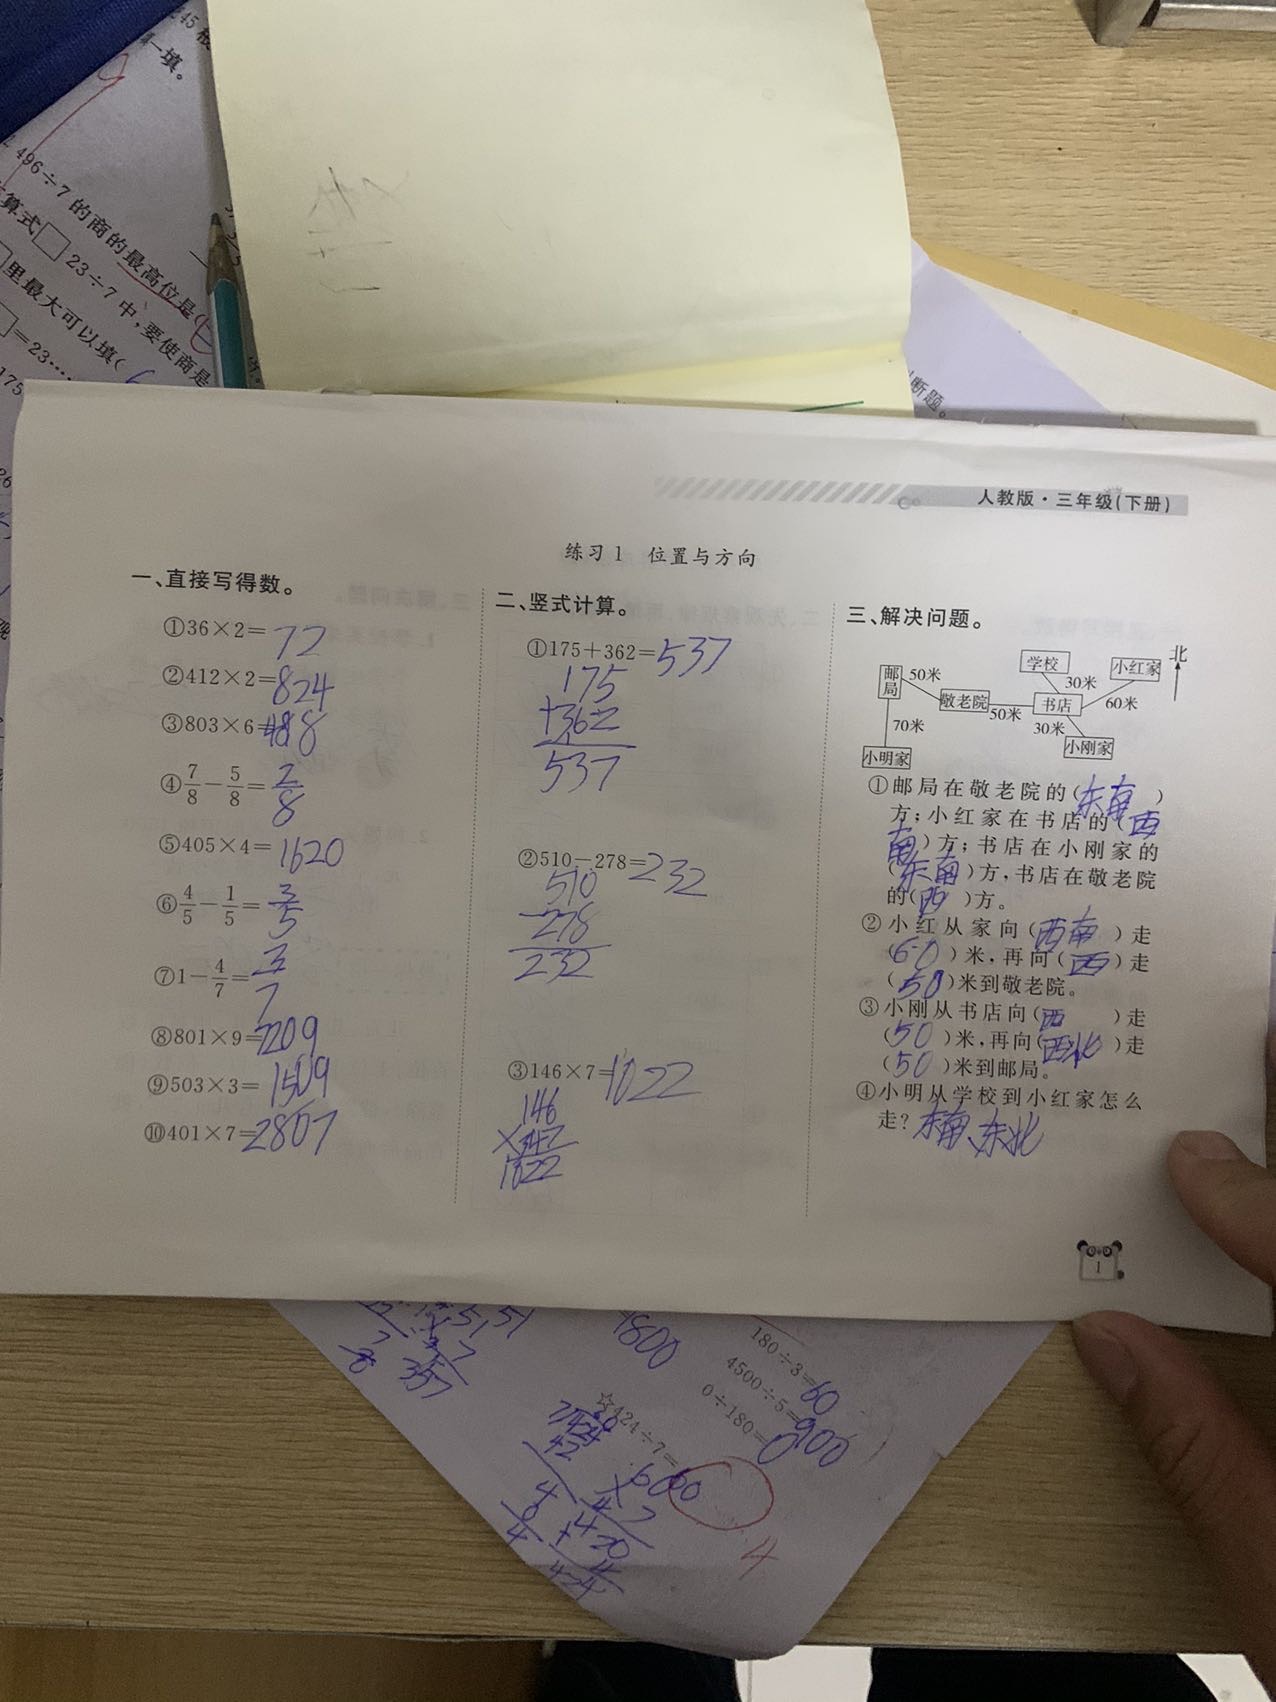 45
填。
496÷7的商的最高位是(
算式□23÷7中,要使商是
里最大可以填(6
=23……
175
断题。
人教版·三年级(下册)
练习1 位置与方向
一、直接写得数。
①36×2=72
②412×2=824
③803×6=
④7/8-5/8=2/8
⑤405×4=1620
⑥4/5-1/5=3/5
⑦1-4/7=3/7
⑧801×9=7209
⑨503×3=1509
⑩401×7=2807
二、竖式计算。
①175+362=537
175
+362
537
②510-278=232
510
-278
232
③146×7=1022
146
×7
1022
三、解决问题。
北
学校
小红家
邮局
50米
30米
敬老院
书店
60米
50米
70米
30米
小明家
小刚家
①邮局在敬老院的(东南)
方;小红家在书店的(西
南)方;书店在小刚家的
(东南)方,书店在敬老院
的(西)方。
②小红从家向(西南)走
(60)米,再向(西)走
(50)米到敬老院。
③小刚从书店向(西)走
(50)米,再向(西北)走
(50)米到邮局。
④小明从学校到小红家怎么
走?东南、东北
1
51
51
7
357
1800
180÷3=60
4500÷5=900
0÷180=0
☆424÷7=60
42
4
0
4
60
×7
420
+4
424
4